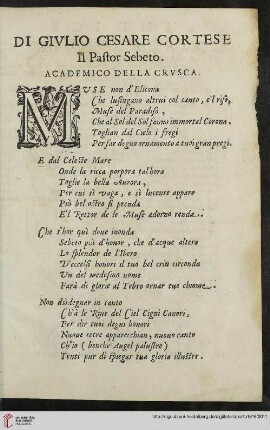 DI GIVLIO CESARE CORTESE
Il Pastor Sebeto.
ACADEMICO DELLA CRVSCA.
MVSE non d'Elicona
Che lusingano altrui col canto, e'l riso,
Muse del Paradiso,
Che al Sol del Sol fanno immortal Corona.
Togliam dal Cielo i fregi
Per far degno ornamento a tuoi gran pregi.
E dal Celeste Mare
Onde la ricca porpora talhora
Toglie la bella Aurora,
Per cui sì vaga, e sì lucente appare
Più bel ostro si prenda
E'l Rettor de le Muse adorno renda.
Che s'hor quì dove inonda
Sebeto più d'honor, che d'acque altero
Lo splendor de l'Ibero
D'eccelsi honori il tuo bel crin circonda
Un del medesmo nome
Farà di gloria al Tebro ornar tuo chiome.
Non disdegnar in tanto
Ch'à le Rive del Ciel Cigni Canori,
Per dir tuoi degni honori
Nuove cetre apparecchian, nuovo canto
Ch'io (benche Augel palustre)
Tenti pur di spiegar tua gloria illustre.